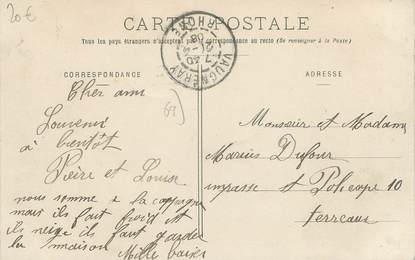 20€
CARTE POSTALE
Tous les pays étrangers n'acceptent pas la correspondance au recto (Se renseigner à la Poste)
CORRESPONDANCE
ADRESSE
VAUGNERAY RHONE
Cher ami
Souvenir
à bientôt
Pière et Louise
nous somme a la compagne
mais ils fait froid et
ils neige ils faut garder
la maison Mille baisers
69
Monsieur et Madame
Marius Dufour
impasse St Policape 10
terreaux